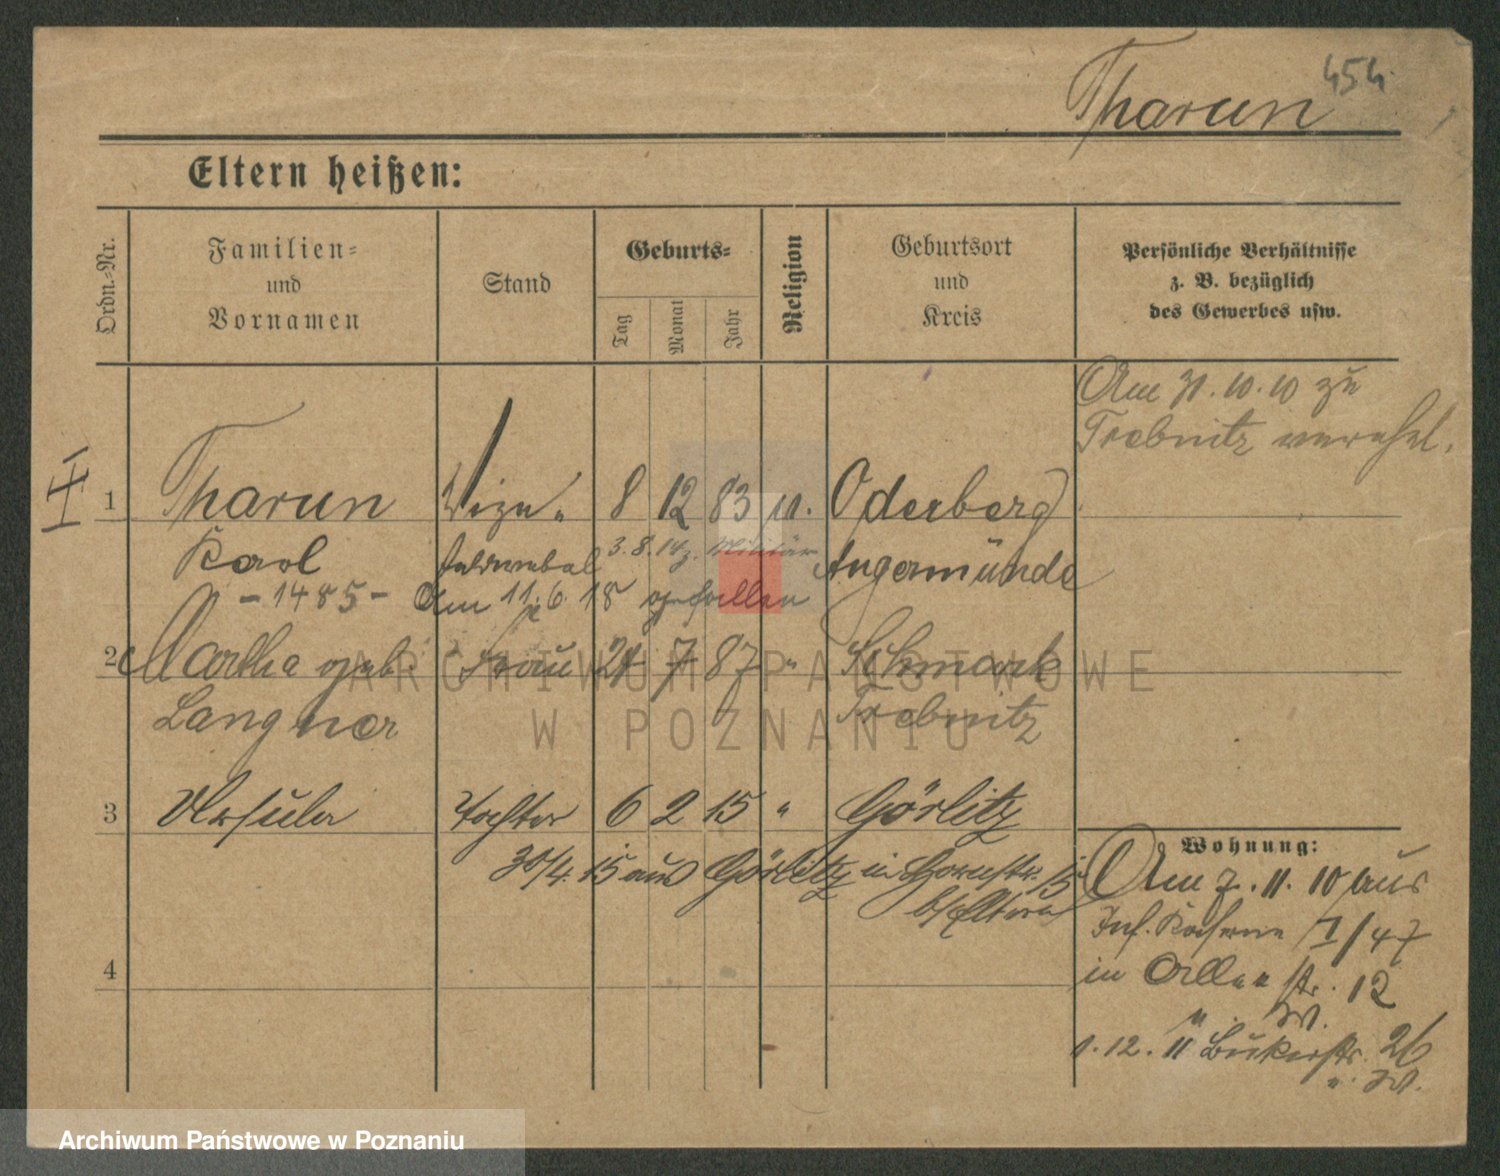 454
Tharun
Eltern heißen:
Ordn.-Nr.
Familien-
und
Vornamen
Stand
Geburts-
Tag
Monat
Jahr
Religion
Geburtsort
und
Kreis
Persönliche Verhältnisse
z. B. bezüglich
des Gewerbes usw.
Am 31.10.10 zu
Trebnitz verehel.
1 Tharun Vize- 8 12 83 Oderberg
Karol feldwebel 3.8.14 z. Militär Angermünde
- 1485 - Am 11.6.18 gefallen
2 Martha geb. Frau 21 7 87 " Schmark
Langner Trebnitz
3 Ursula Tochter 6 2 15 " Görlitz
30/4. 15 aus Görlitz in 15
b/Eltern
Wohnung:
Am 7. 11. 10 aus
Inf. Kaserne I/47
in str. 12
u. W.
1. 12. 11 Bukerstr. 26
u. W.
4
ARCHIWUM PAŃSTWOWE
W POZNANIU
Archiwum Państwowe w Poznaniu